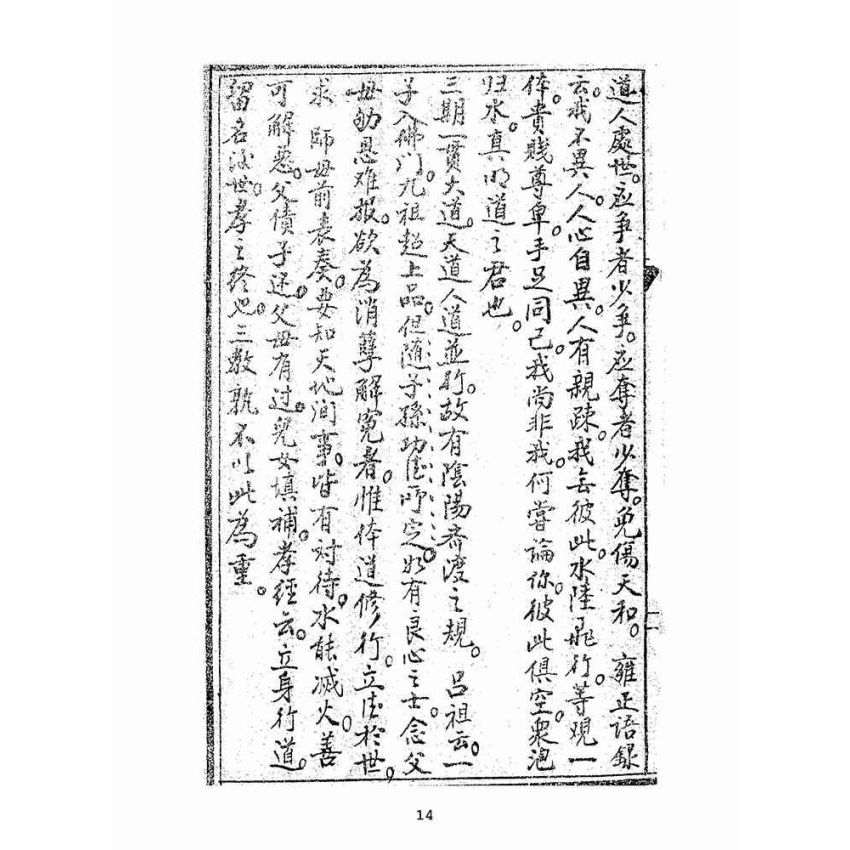 道人處世。应爭者少爭。应奪者少奪。免傷天和。雍正语録
云。我不異人。人心自異。人有親疎。我无彼此。水陸飛行。等观一
体。貴賤尊卑。手足同己。我尚非我。何嘗論你。彼此俱空。衆泡
归水。真明道之君也。
三期一貫大道。天道人道並行。故有陰陽齋渡之規。吕祖云。一
子入佛门。九祖超上品。但随子孫功德所定。如有良心之士。念父
母劬恩难报。欲為消孽解寃者。惟体道修行。立德於世。
求 師母前表奏。要知天地间事。皆有对待。水能滅火。善
可解惡。父債子还。父母有过。兒女填補。孝經云。立身行道。
留名後世。孝之終也。三教孰不以此為重。
14